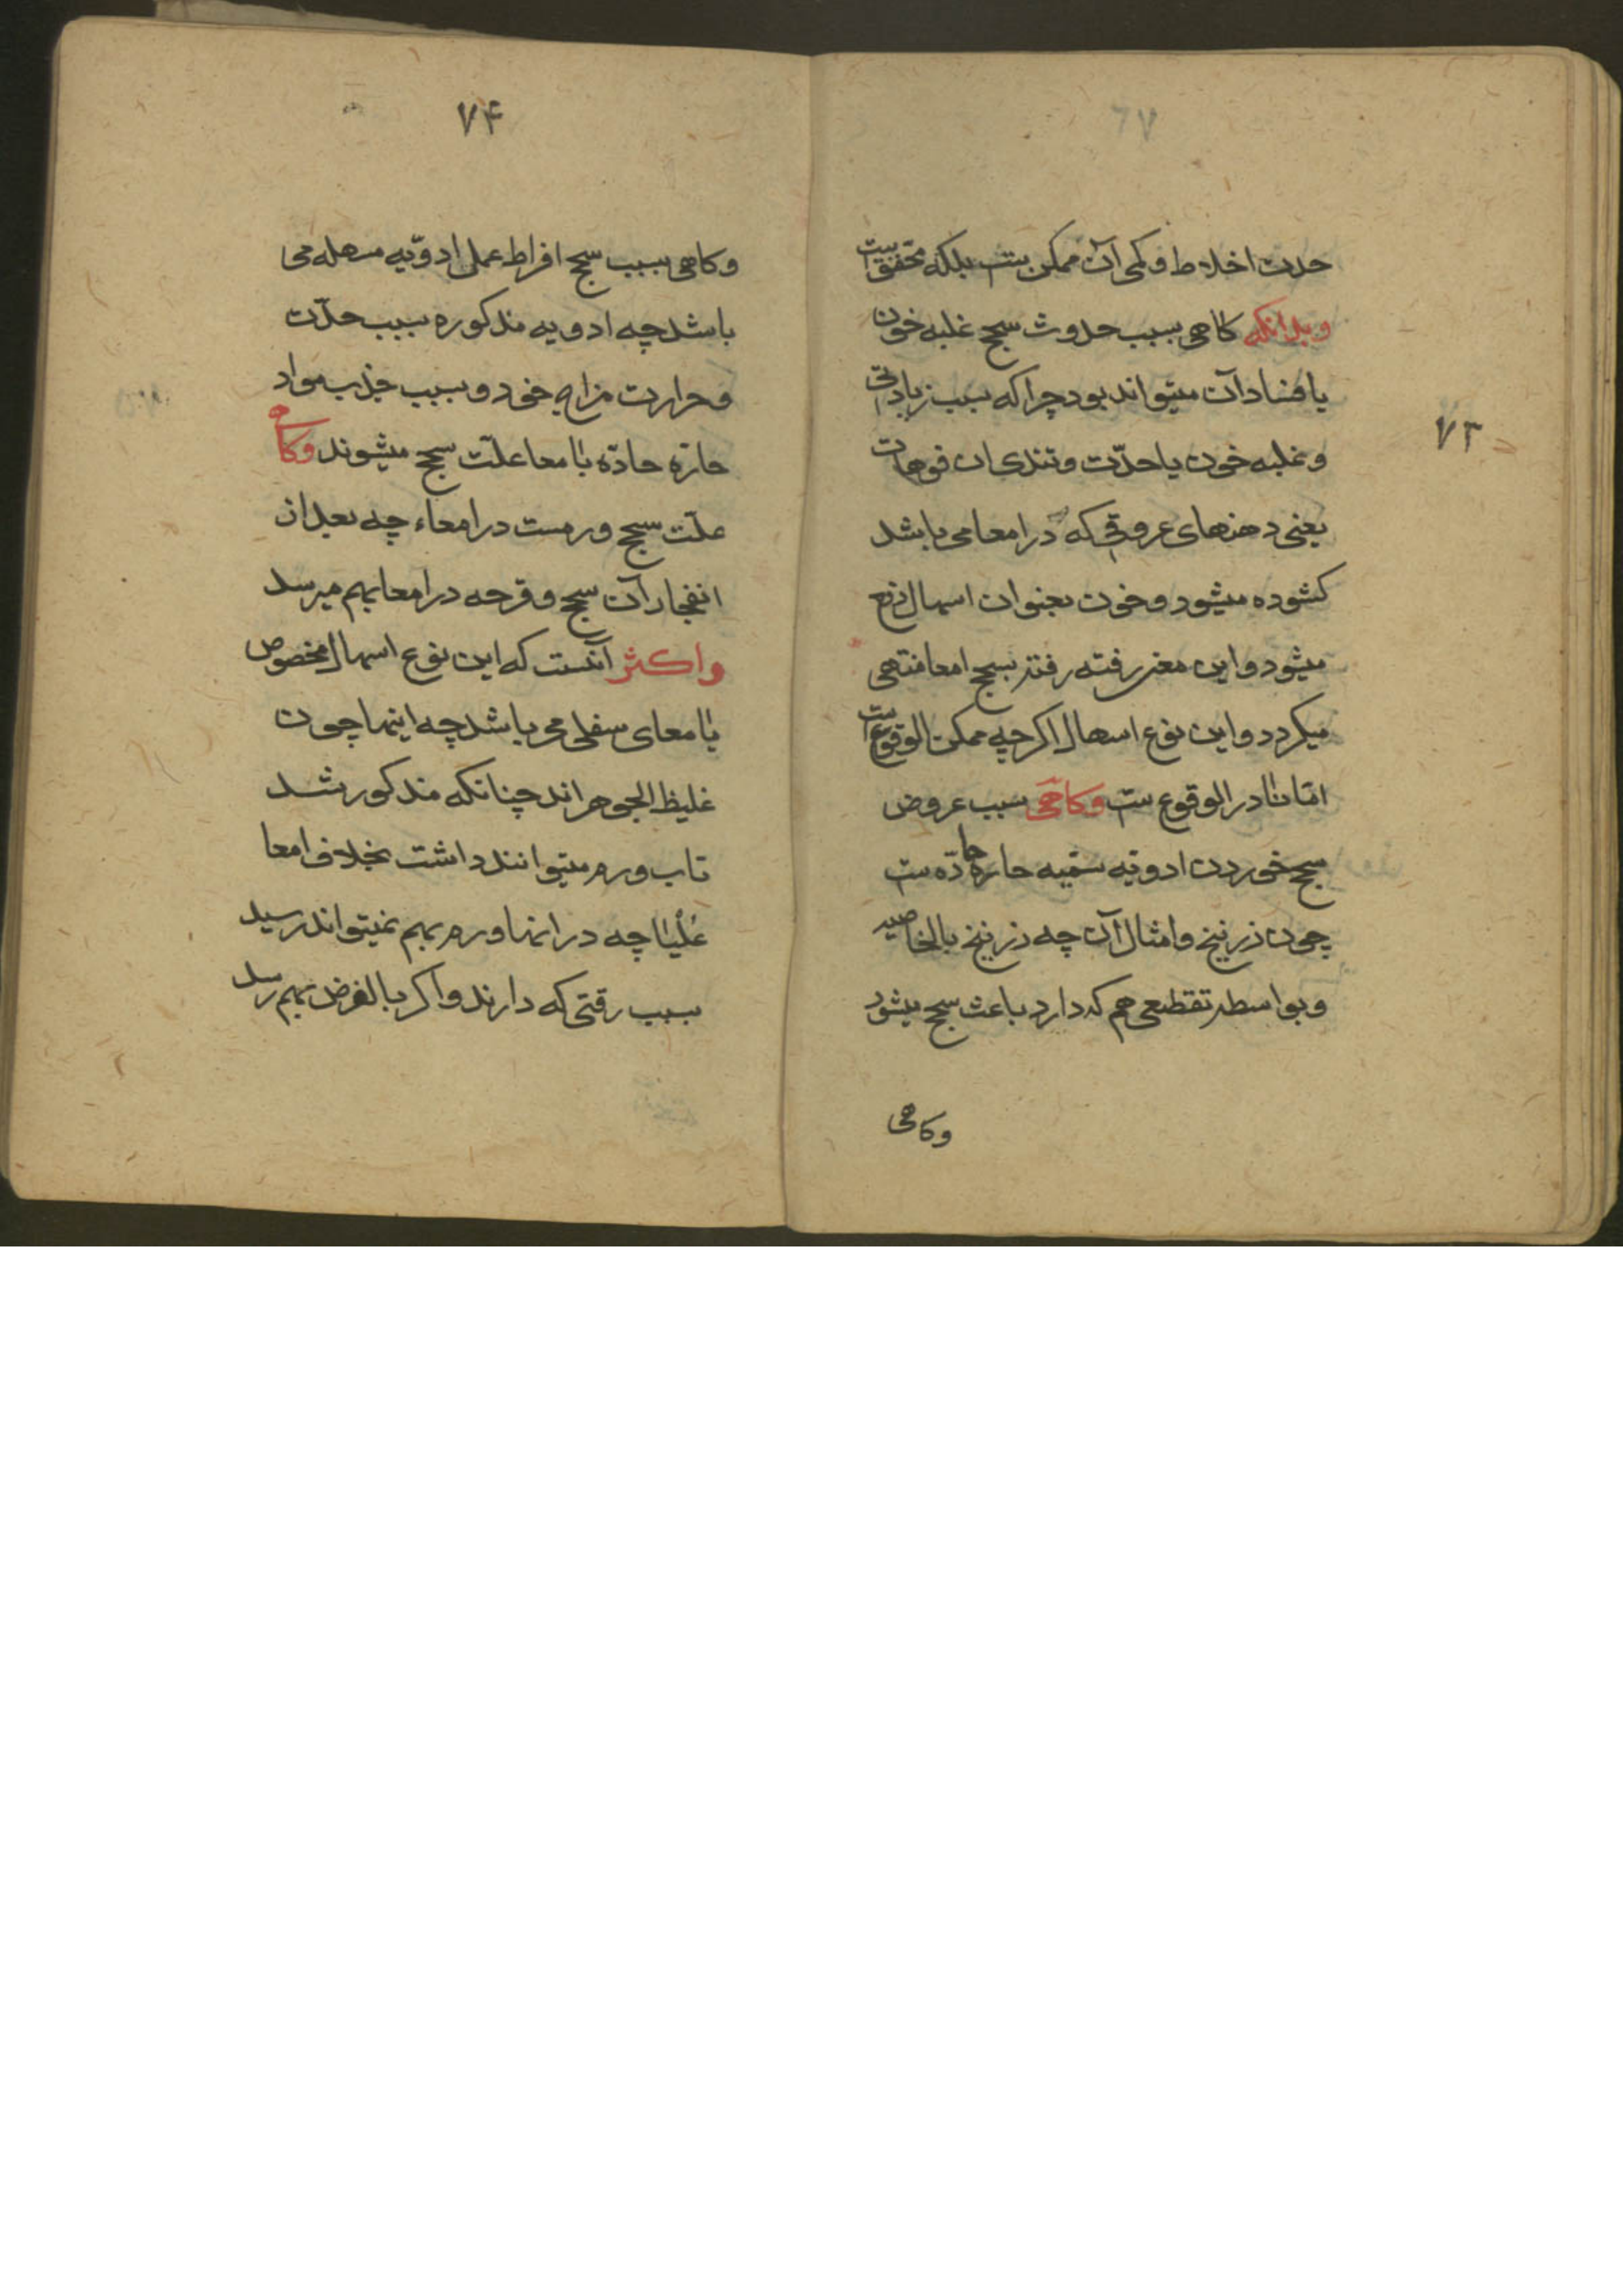 ۷۳
حدت اخلاط و کمی آن ممکن ست بلکه متحقق ست
و بدانکه کاهی سبب حدوث سحج غلبه خون
یا فساد آن میتواند بود چرا که بسبب زیادتی
و غلبه خون یا حدّت و تندی ان فوهات
یعنی دهنهای عروقی که در امعا می باشد
کشوده میشود و خون بعنوان اسهال دفع
میشود و این معنی رفته رفته بسحج امعا منتهی
میکردد و این نوع اسهال اکرچه ممکن الوقوع ست
امّا نادر الوقوع ست و کاهی سبب عروض
سحج خوردن ادویّه سمّیه حاره حادّه ست
چون زرنیخ و امثال آن چه زرنیخ بالخاصیه
و بواسطه تقطیعی هم که دارد باعث سحج میشود
وکاهی
۷۴
و کاهی سبب سحج افراط عمل ادویّه مسهله می
باشد چه ادویه مذکوره بسبب حدّت
و حرارت مزاج خود و بسبب جذب مواد
حارّه حادّه بامعا علّت سحج میشوند و کاه
علّت سحج ورمست در امعاء چه بعد از
انفجار آن سحج و قرحه در امعا بهم میرسد
و اکثر آنست که این نوع اسهال مخصوص
بامعای سفلی می باشد چه اینها چون
غلیظ الجوهر اند چنانکه مذکور شد
تاب ورم میتوانند داشت بخلاف امعا
عُلْیا چه در انها ورم بهم نمیتواند رسید
بسبب رقتی که دارند و اکر بالفرض بهم رسد